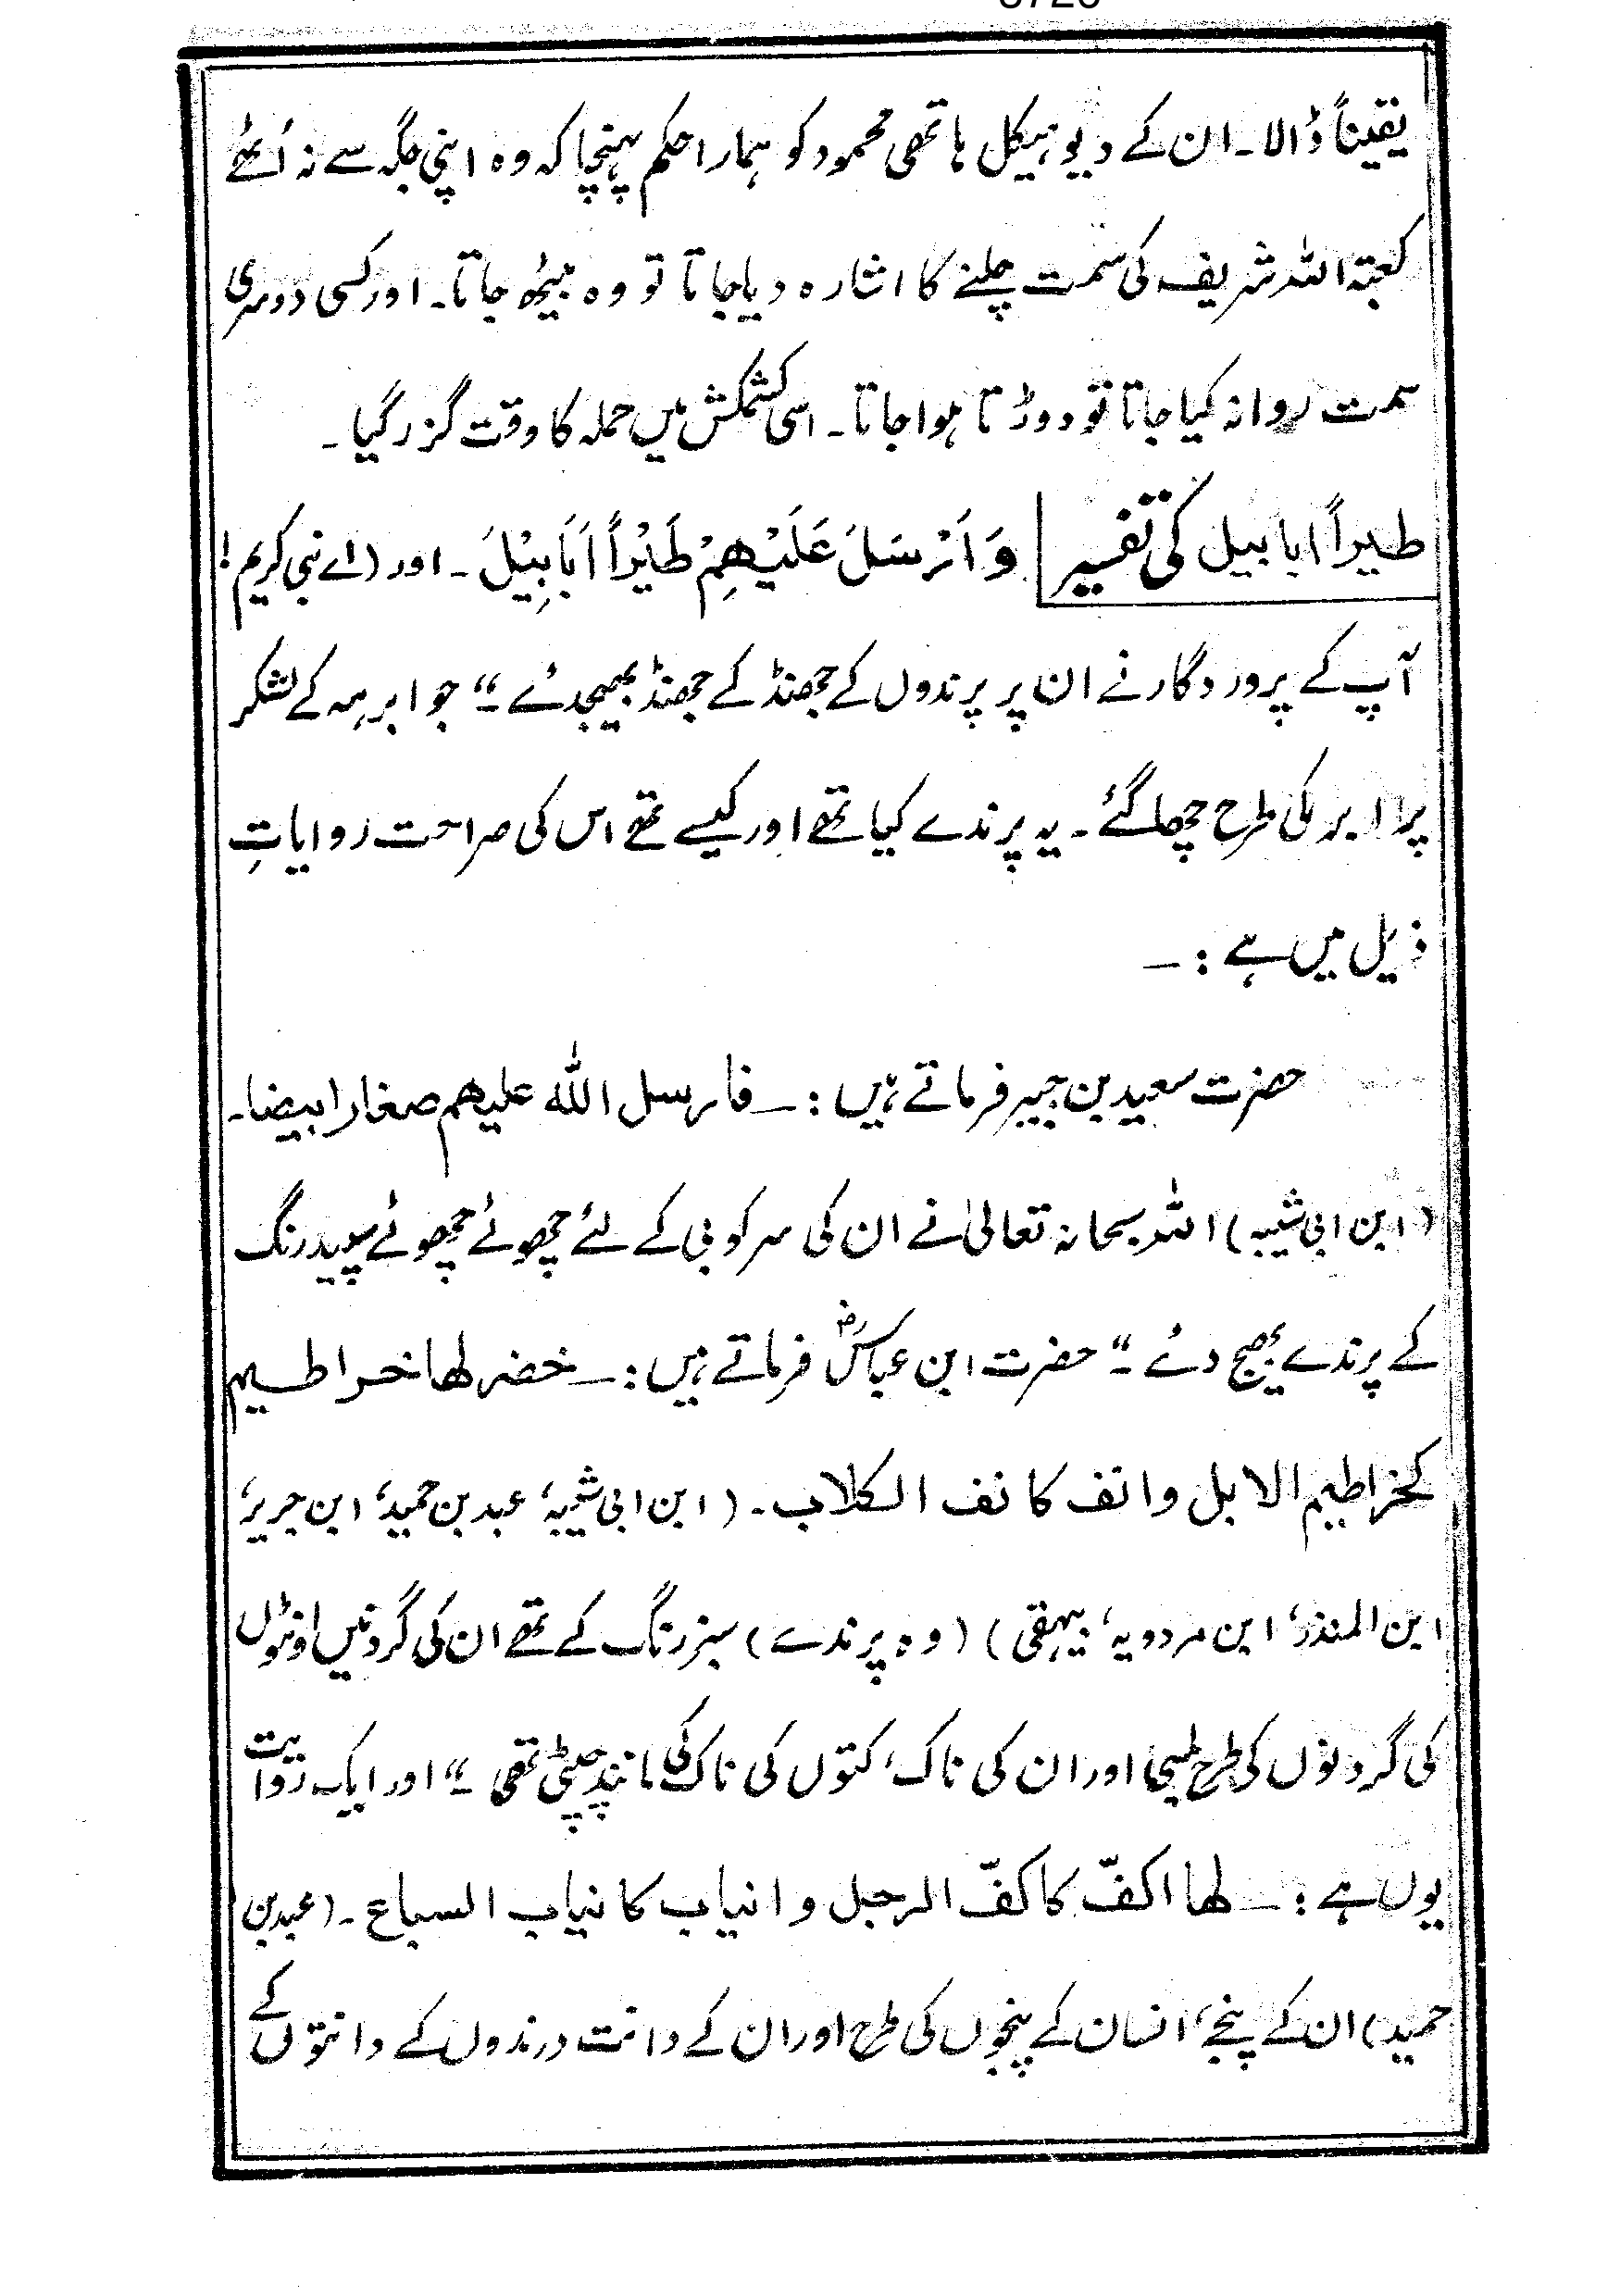 یقیناً ڈالا۔ ان کے دیوہیکل ہاتھی محمود کو ہمارا حکم پہنچا کہ وہ اپنی جگہ سے نہ اُٹھے
کعبۃ اللہ شریف کی سمت چلنے کا اشارہ دیا جاتا تو وہ بیٹھ جاتا۔ اور کسی دوسری
سمت روانہ کیا جاتا تو دوڑتا ہوا جاتا۔ اسی کشمکش میں حملہ کا وقت گزر گیا۔
طیراً ابابیل کی تفسیر وَاَرْسَلَ عَلَیْھِمْ طَیْراً اَبَابِیْلَ۔ اور (اے نبی کریم!
آپ کے پروردگار نے ان پر پرندوں کے جھنڈ کے جھنڈ بھیجدئے ۔“ جو ابرہہ کے لشکر
پر ابر کی طرح چھا گئے۔ یہ پرندے کیا تھے اور کیسے تھے اس کی صراحت روایاتِ
ذیل میں ہے :۔
حضرت سعید بن جبیر فرماتے ہیں :۔ فارسل اللہ علیھم صغارا بیضا۔
(ابن ابی شیبہ) اللہ سبحانہ تعالیٰ نے ان کی سرکوبی کے لئے چھوٹے چھوٹے سپید رنگ
کے پرندے بھیج دئے ۔“ حضرت ابن عباسؓ فرماتے ہیں :۔ خضر لھا خراطیم
کخراطیم الابل وانف کانف الکلاب۔ (ابن ابی شیبہ، عبد بن حمید، ابن جریر،
ابن المنذر، ابن مردویہ، بیہقی) (وہ پرندے) سبز رنگ کے تھے ان کی گردنیں اونٹوں
کی گردنوں کی طرح لمبی اور ان کی ناک، کتوں کی ناک کی مانند چپٹی تھی ۔“ اور ایک روایت
یوں ہے :۔ لھا اکفّ کاکفّ الرجل و انیاب کانیاب السباع۔ (عبد بن
حمید) ان کے پنجے، انسان کے پنجوں کی طرح اور ان کے دانت درندوں کے دانتوں کے